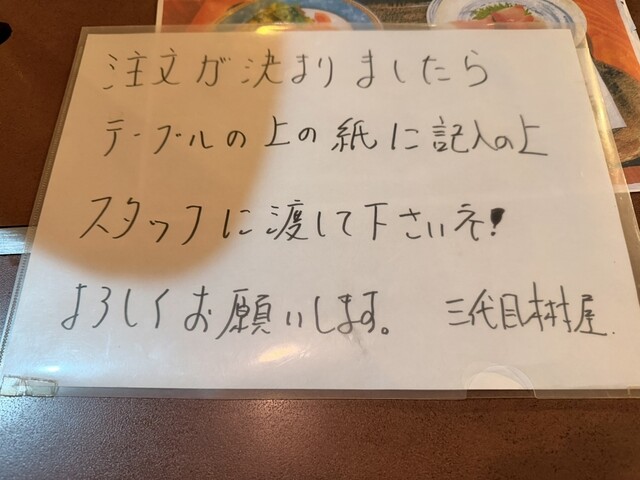 注文が決まりましたら
テーブルの上の紙に記入の上
スタッフに渡して下さいネ!
よろしくお願いします。 三代目村村屋.